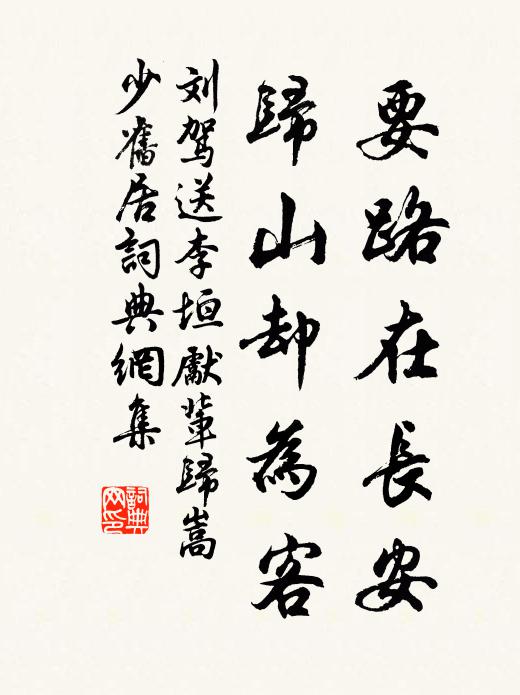 要路在長安
歸山却為客
刘駕送李垣獻輩歸嵩
少舊居詞典網集
詞典
网印